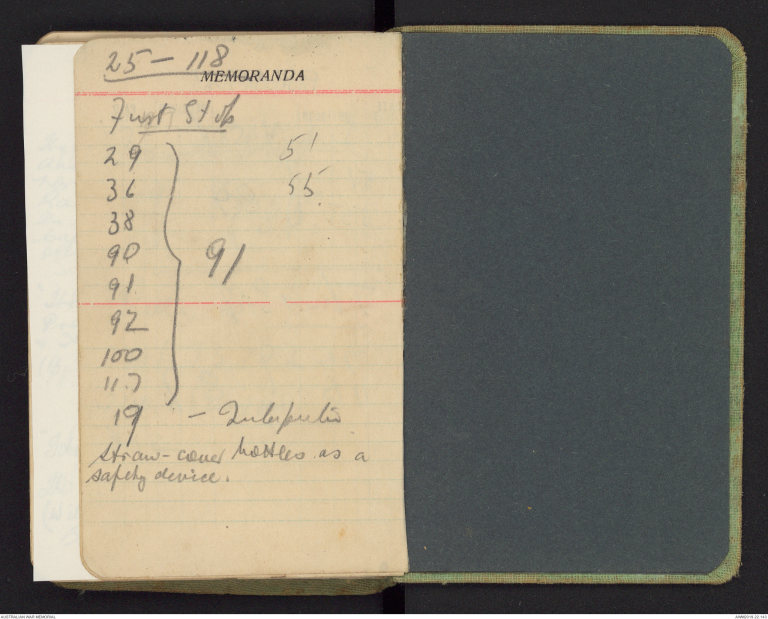 25 - 118
MEMORANDA
First Stop
29
36
38
90
91
92
100
117
91
51
55
19 -
Straw-cover bottles as a
safety device.
AUSTRALIAN WAR MEMORIAL